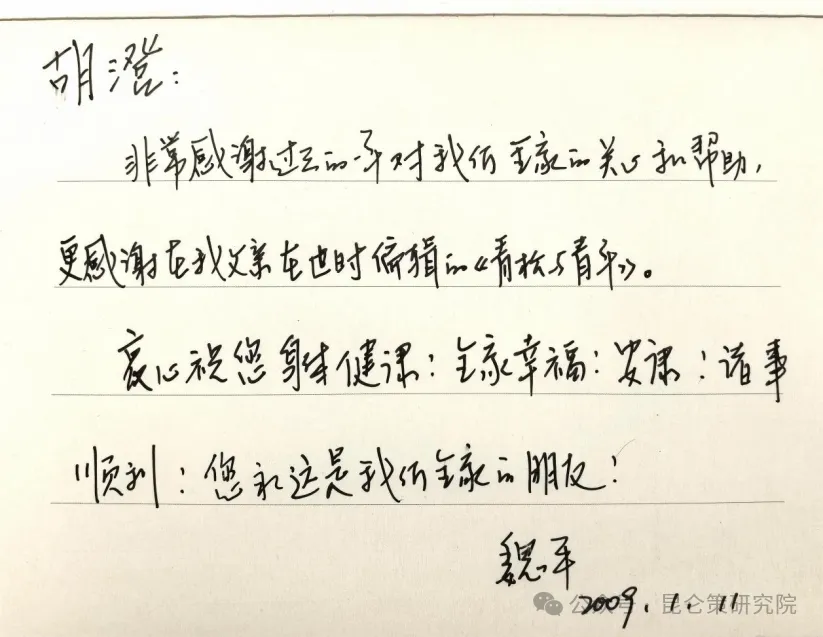 胡澄：
非常感谢过去的一年对我们全家的关心和帮助，
更感谢在我父亲在世时编辑的《青松与青年》。
衷心祝您身体健康！全家幸福！安康！诸事
顺利！您永远是我们全家的朋友！
魏平
2009.1.11
公众号·昆仑策研究院